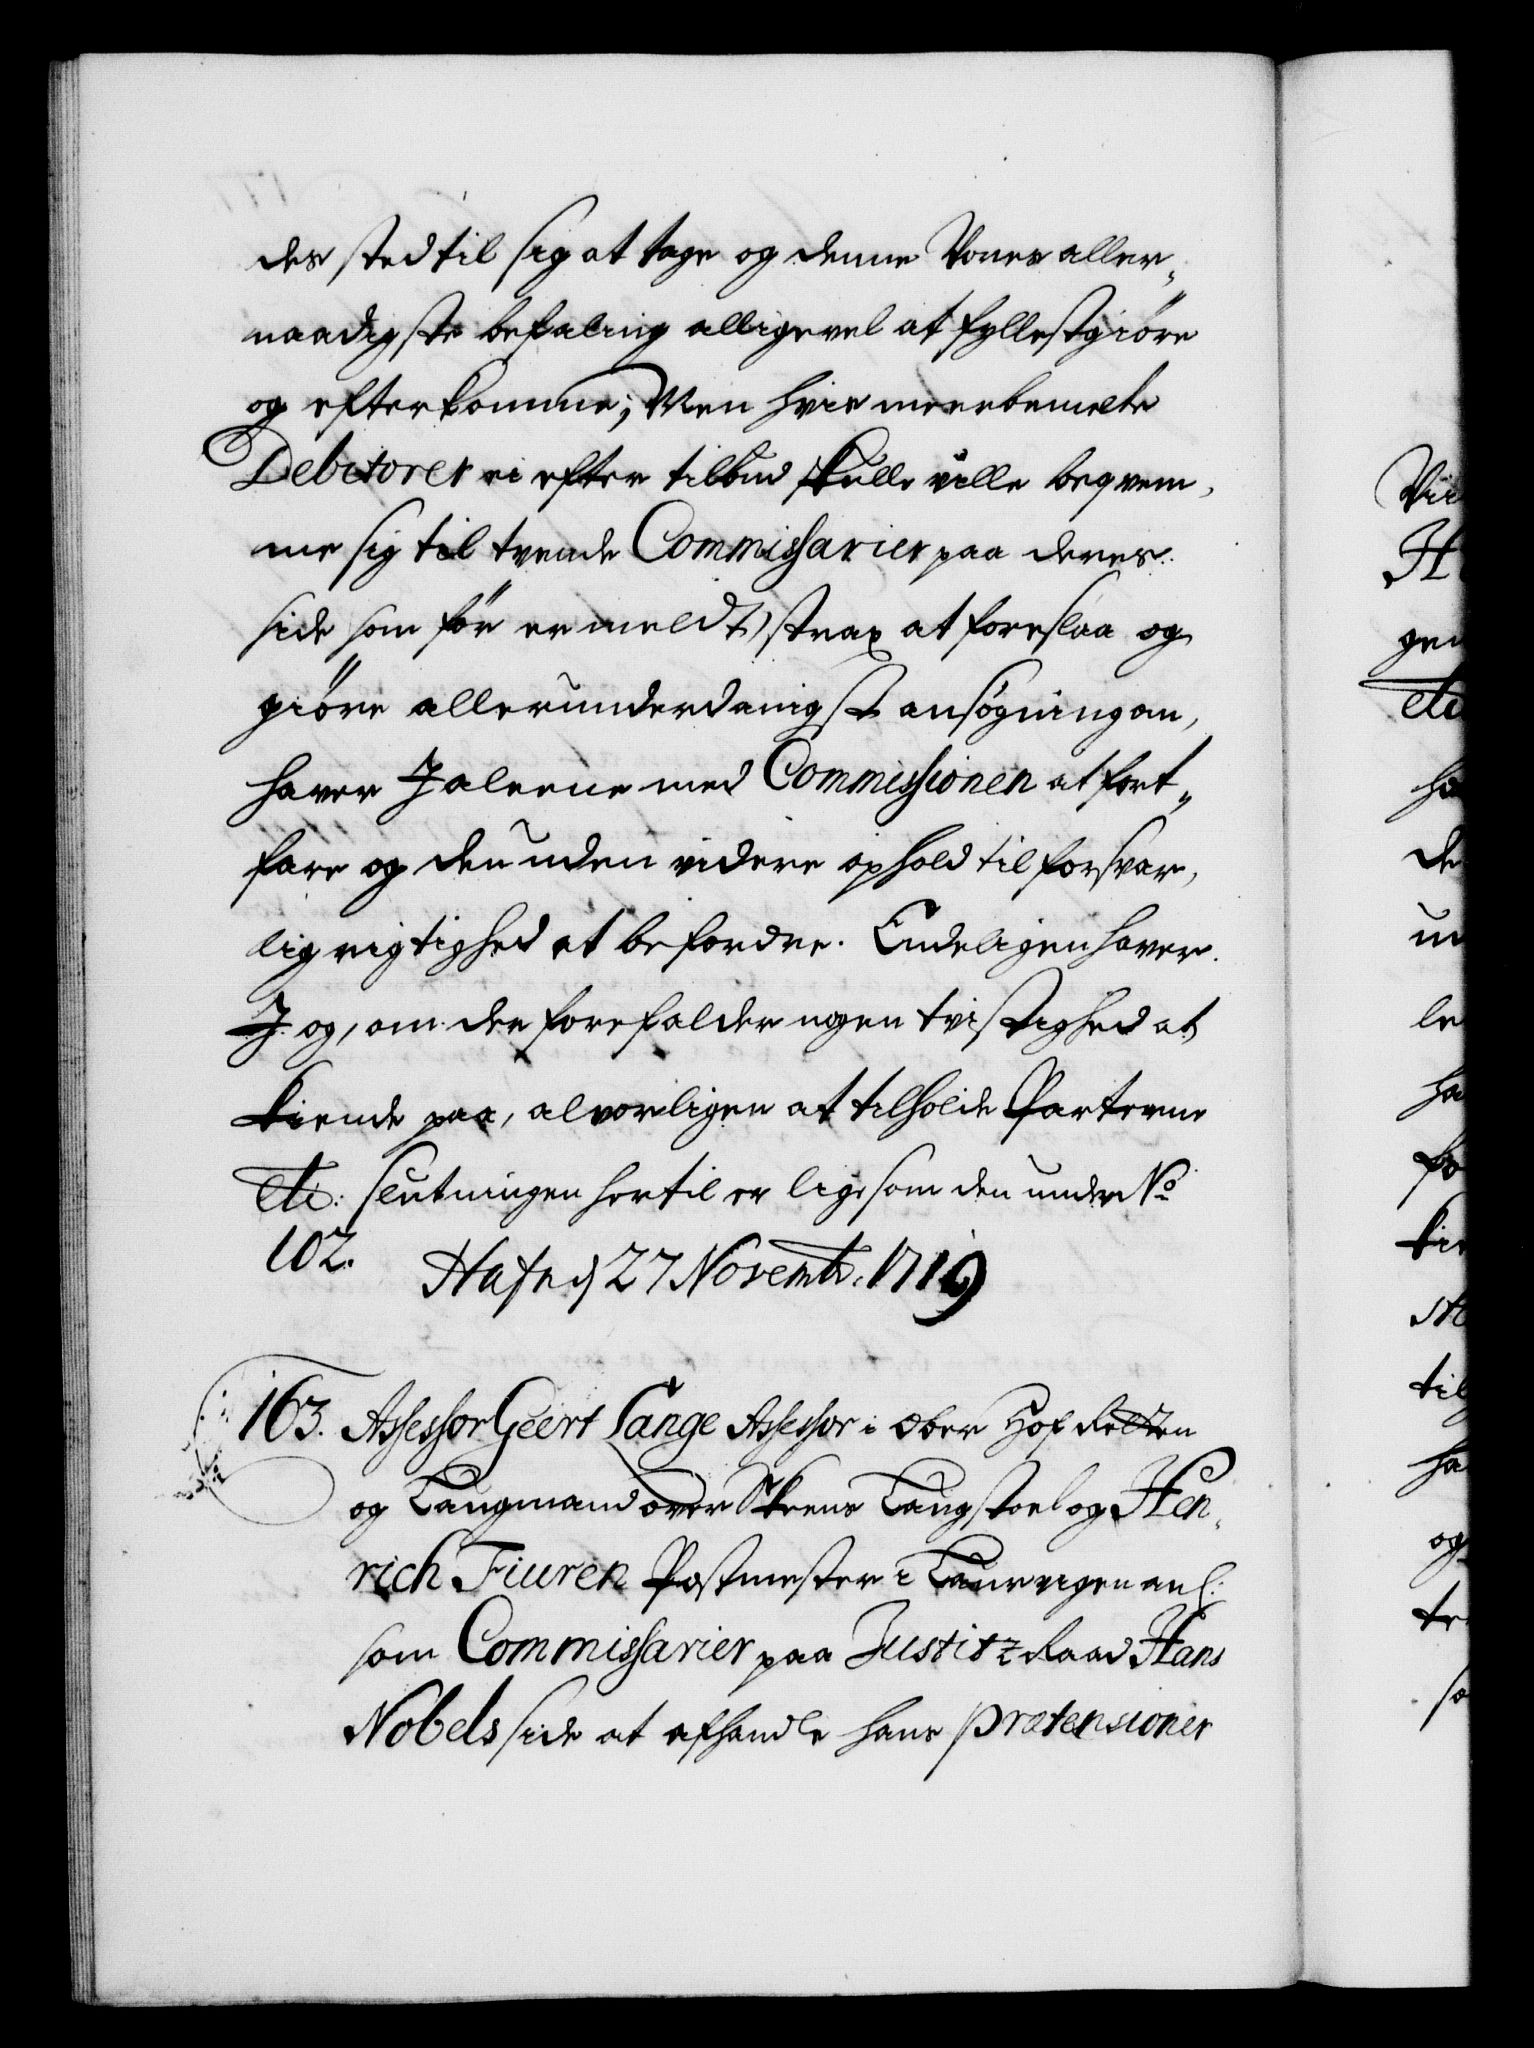 des sted til sig at tage og denne Vores aller„
naadigste befaling alligevel at fyllestgiøre
og efterkomme; Men hvis meerbemelte
Debitorer ei efter tilbud skulle ville beqvem,
me sig til tvende Commissarier paa deres
side som før er meldt, strax at foreslaa og
giøre allerunderdanigst ansøgning om,
haver I aleene med Commissionen at fort„
fare og den uden videre ophold til forsvar,
lig rigtighed at befordre. Endeligen haver
I og, om der forefalder nogen tvistighed at
kiende paa, alvorligen at tilholde Parterne
etc: slutningen hertil er ligesom den under No
102.
Hafn d 27 Novembr. 1719
163. Assessor Geert Lange Assessor i Ober Hof Retten
og Laugmand over Skeens Laugstoel og Hen,
rich Fiuren Postmester i Laurvigen anl:
som Commissarier paa Justitz Raad Hans
Nobels side at afhandle hans prætensioner
Vii
H
gen
etc
ha
de
un
le
ha
fo
kie
ste
til
ha
og
tr
so